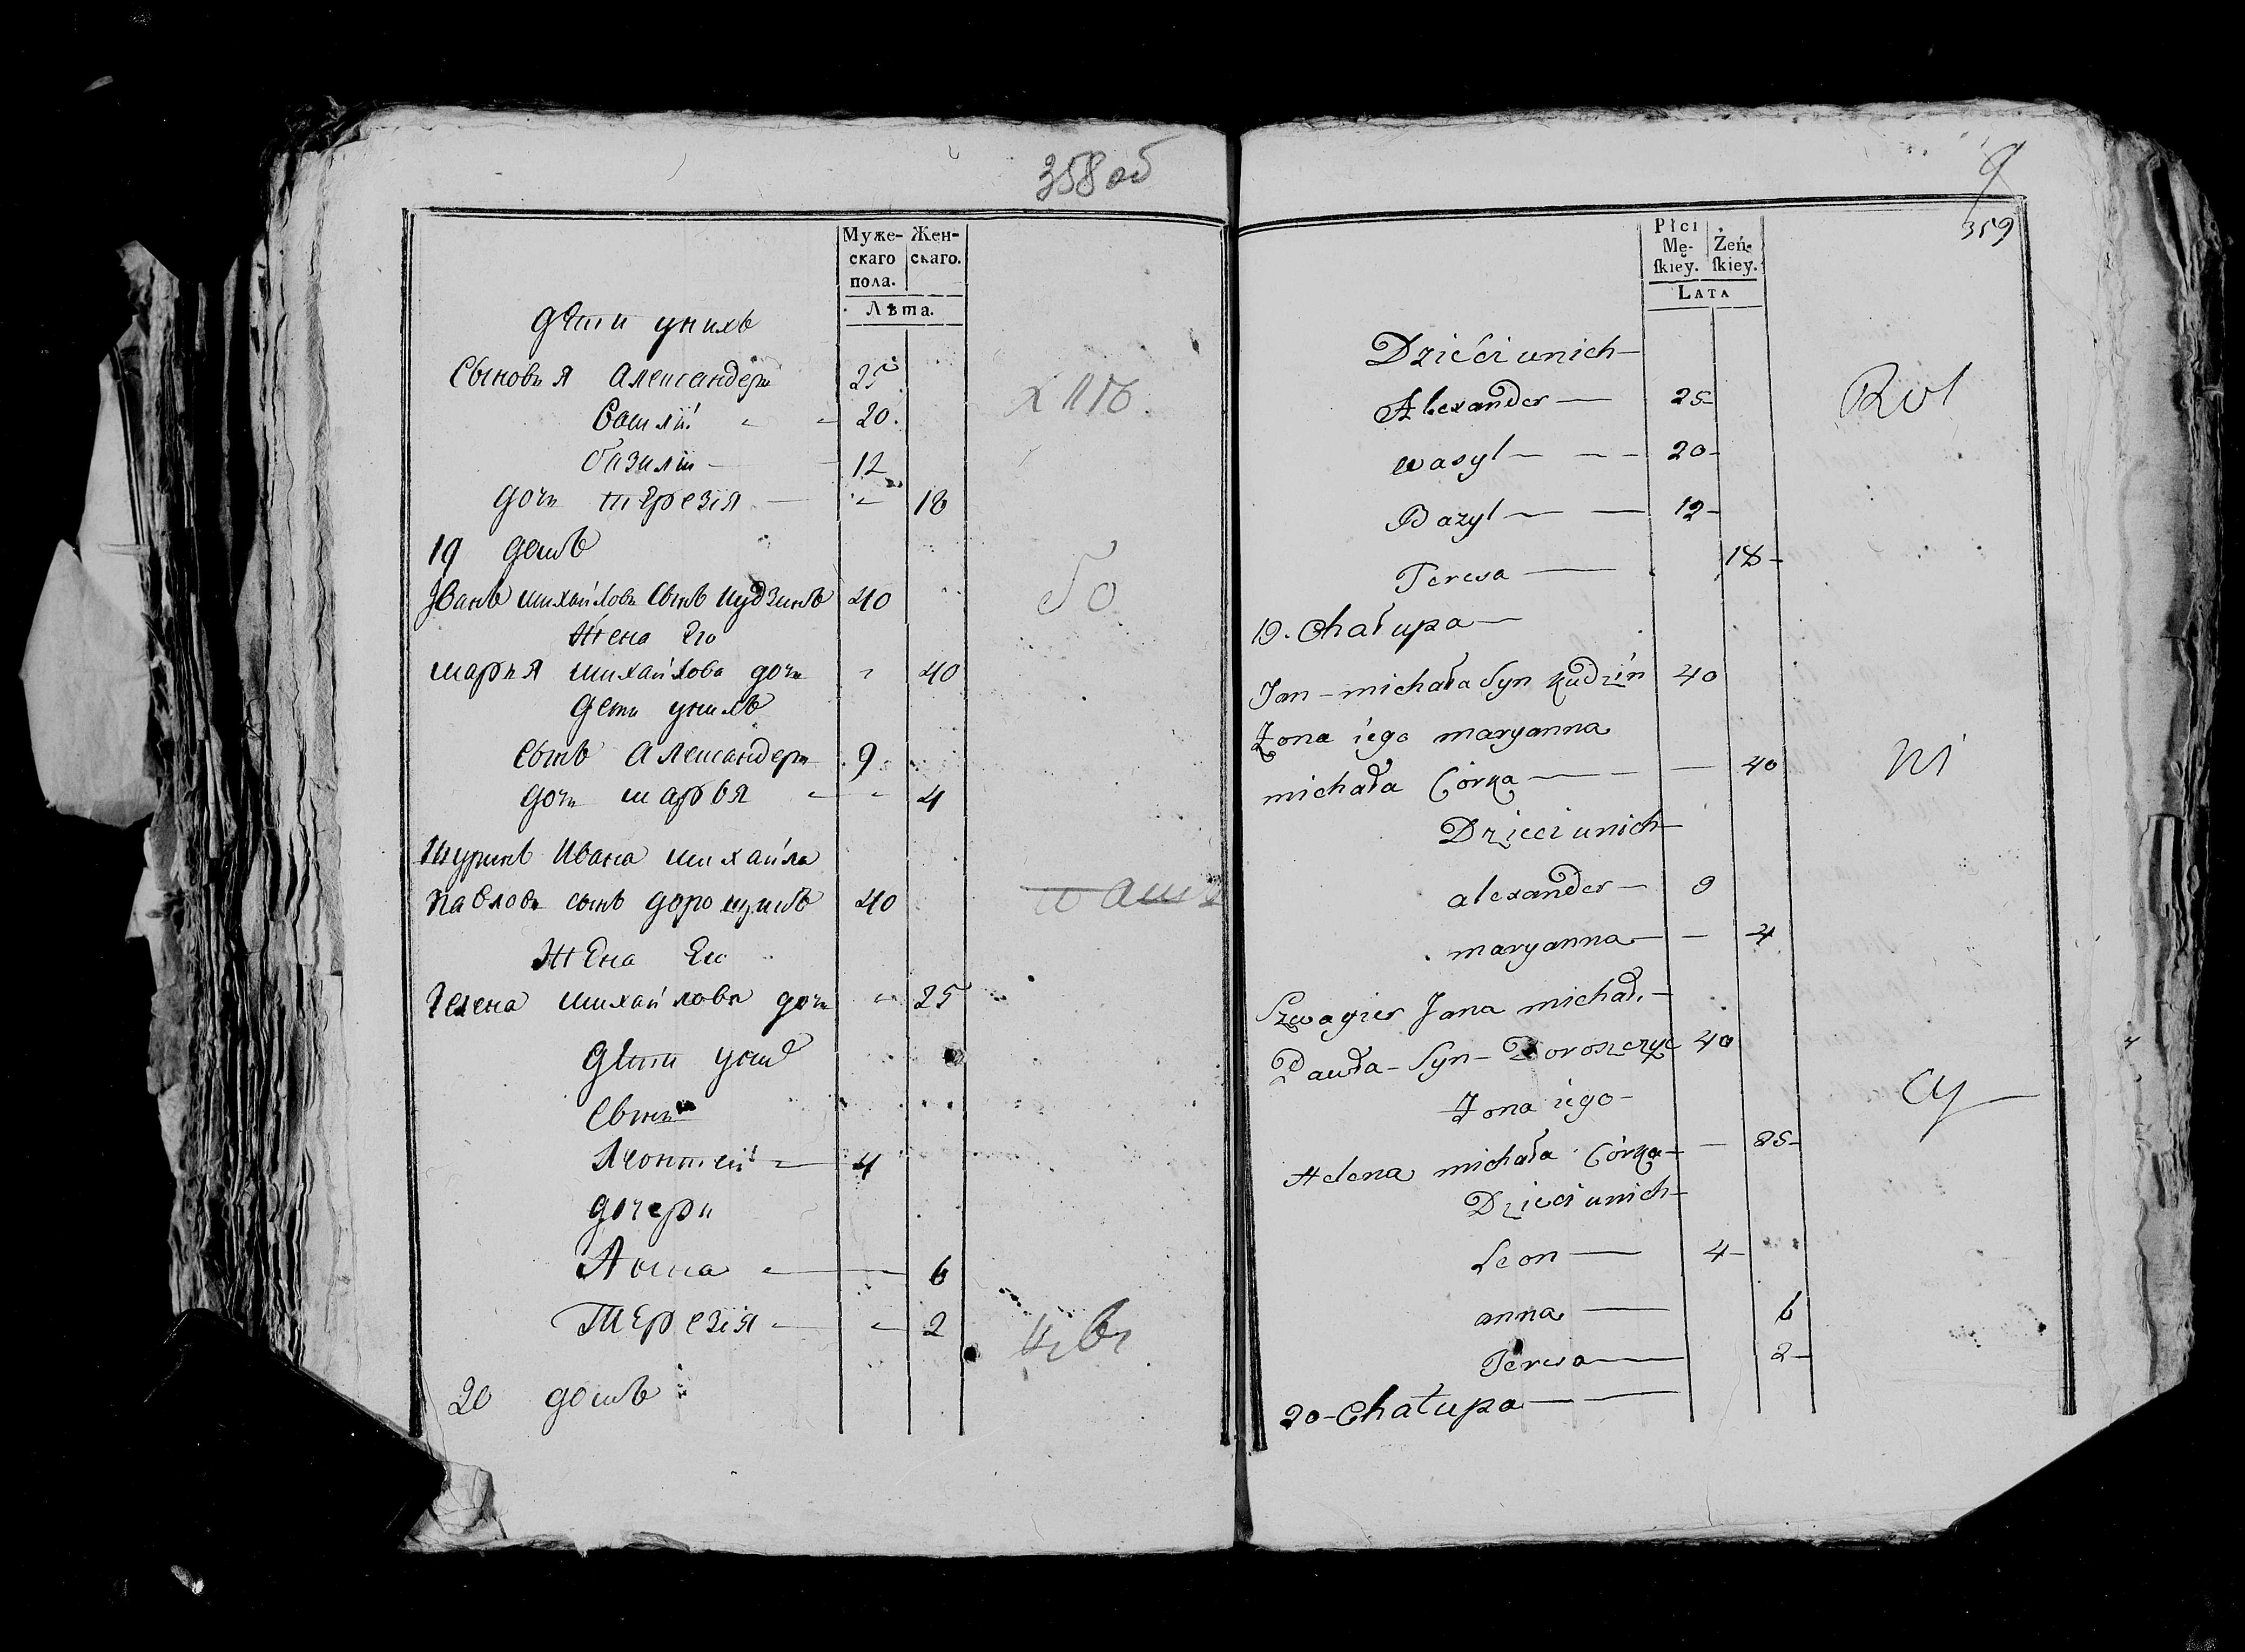 358 об
Муже- Жен-
скаго скаго.
пола.
Лѣта.
дѣти унихъ
Сыновья Александеръ 25
Василй 20
базили 12
дочь терезія 18
19 домъ
Иванъ михайловъ сынъ кудзинъ 40
Жена Его
марья михайлова дочь 40
дети унихъ
сынъ Александеръ 9
дочь марья 4
Шуринъ Ивана михайла
павловъ сынъ дорощикъ 40
Жена Его
Гелена михайлова дочь 25
дѣти унихъ
Сынъ
Леонтей 4
дочери
Анна 6
Терезія 2
20 домъ
9
359
Płci
Mę- Żeń-
ſkiey. ſkiey.
LATA
Dzieći unich
Alexander 25
wasyl 20
Bazyl 12
Teresa 18
19. Chałupa
Jan - michała Syn Kudzin 40
Żona iego maryanna
michała Córka 40
Dzieci unich
alexander 9
maryanna 4
Szwagier Jana michał.
Pawła - Syn - Doroszczyc 40
Żona iego
Helena michała Córka 25
Dzieci unich
Leon 4
anna 6
Teresa 2
20 - Chałupa